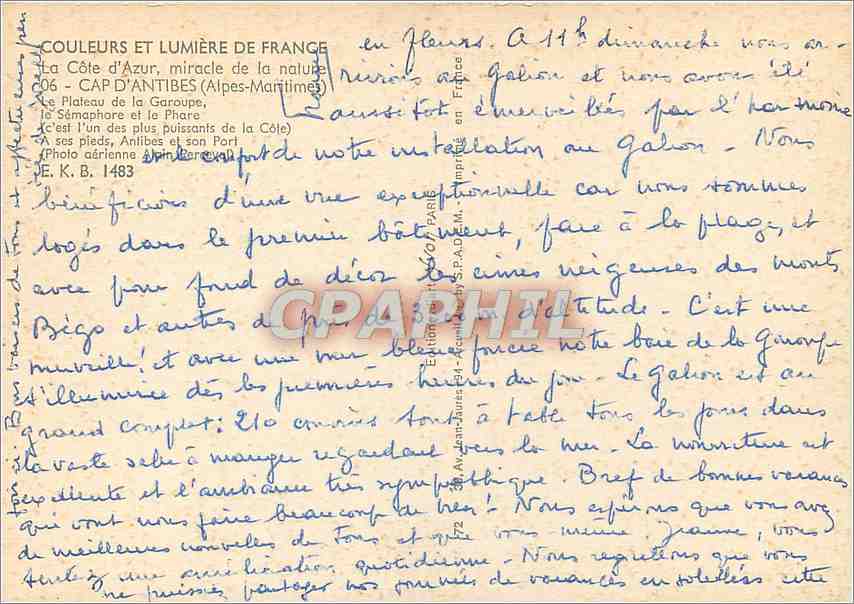 COULEURS ET LUMIÈRE DE FRANCE
La Côte d'Azur, miracle de la nature
06 - CAP D'ANTIBES (Alpes-Maritimes)
Le Plateau de la Garoupe,
le Sémaphore et le Phare
(c'est l'un des plus puissants de la Côte)
A ses pieds, Antibes et son Port
(Photo aérienne Alain Perceval)
E. K. B. 1483
en fleurs. A 11h dimanche nous ar-
rivions au Galion et nous avons été
aussitôt émerveillés par l'harmonie
et le confort de notre installation au Galion - Nous
bénéficions d'une vue exceptionnelle car nous sommes
logés dans le premier bâtiment, face à la plage, et
avec pour fond de décor les cimes neigeuses des monts
Bégo et autres de près de 3000m d'altitude - C'est une
merveille! et avec une mer bleue foncée notre baie de la Garoupe
s'illumine dès les premières heures du jour - Le Galion est au
grand complet: 210 convives sont à table tous les jours dans
la vaste salle à manger regardant vers la mer - La nourriture est
excellente et l'ambiance très sympathique. Bref de bonnes vacances
qui vont nous faire beaucoup de bien! - Nous espérons que vous avez
de meilleures nouvelles de et que vous-même Jeanne, vous
sentez une amélioration quotidienne - Nous regrettons que vous
ne puissiez partager nos journées de vacances ensoleillées cette
Bons baisers de tous et affectueuses
Editions d'art YVON, PARIS
72 - 30, Av. Jean-Jaurès, 94 - Arcueil by S.P.A.D.E.M. - Imprimé en France
CPAPHIL